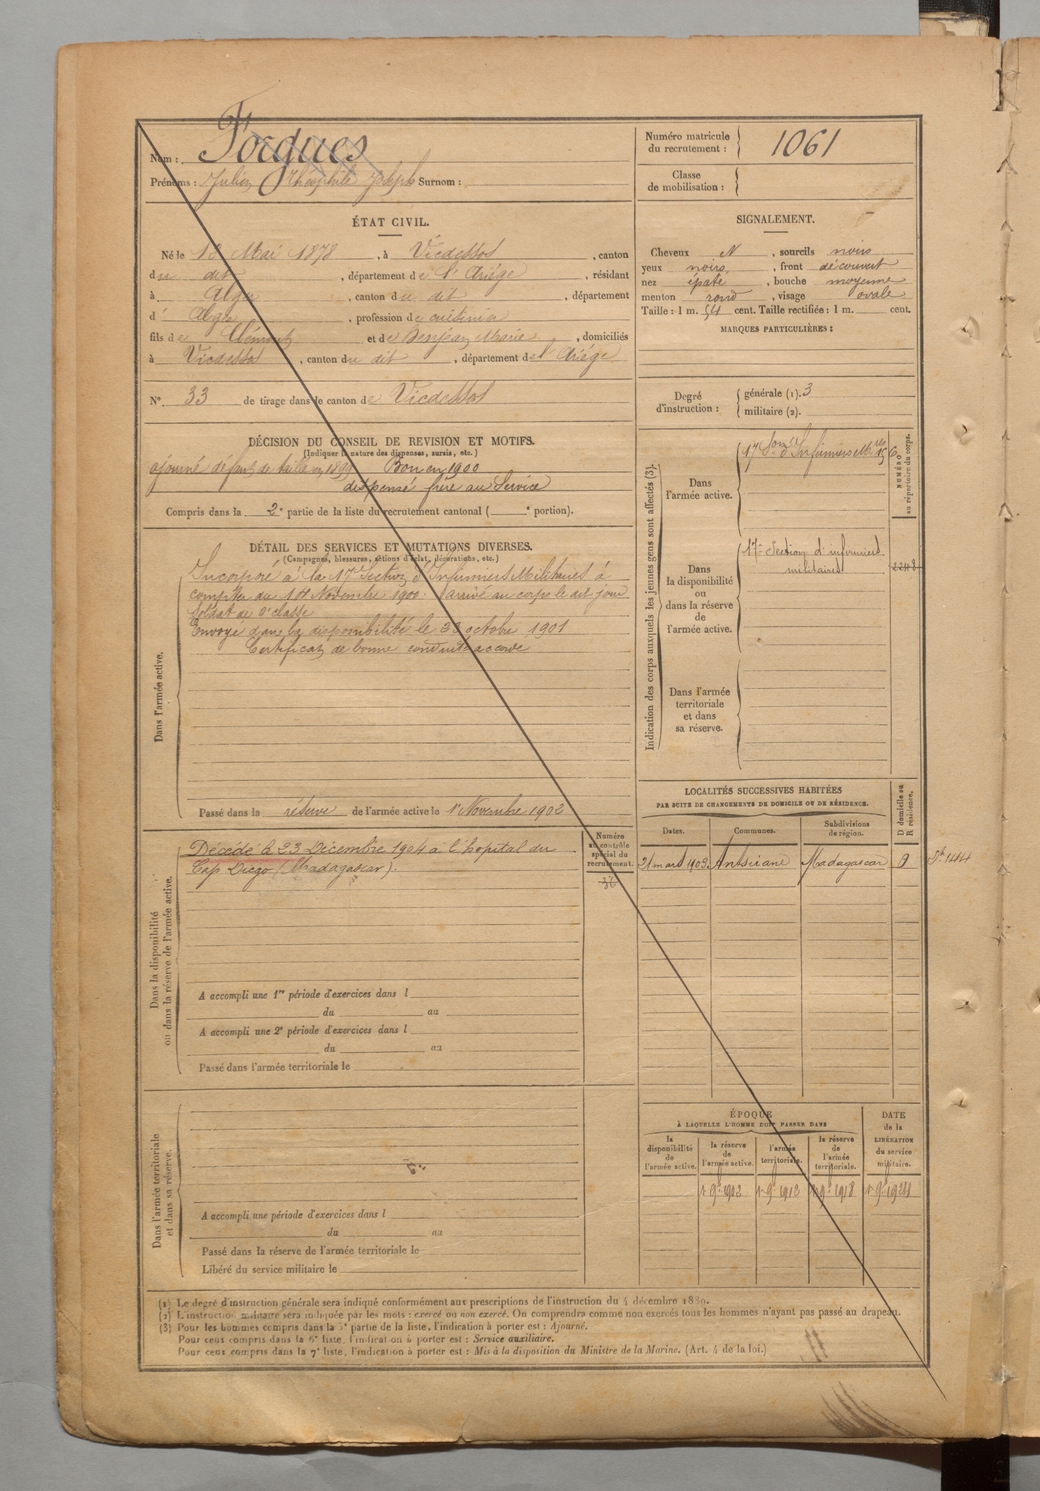 Nom : Forgues
Prénoms : Julien Théophile Joseph Surnom :
Numéro matricule du recrutement : 1061
Classe de mobilisation :
ÉTAT CIVIL.
Né le 18 Mai 1878, à Vicdessos, canton
du dit, département de l'Ariége, résidant
à Alger, canton du dit, département
d' Alger, profession de cuisinier
fils de Clément et de Benjean Marie, domiciliés
à Vicdessos, canton du dit, département de l'Ariége
N° 33 de tirage dans le canton de Vicdessos
SIGNALEMENT.
Cheveux N, sourcils noirs
yeux noirs, front découvert
nez épaté, bouche moyenne
menton rond, visage ovale
Taille : 1 m. 54 cent. Taille rectifiée : 1 m. cent.
MARQUES PARTICULIÈRES :
Degré d'instruction :
générale (1). 3
militaire (2).
DÉCISION DU CONSEIL DE REVISION ET MOTIFS.
(Indiquer la nature des dispenses, sursis, etc.)
ajourné défaut de taille en 1899 Bon en 1900
dispensé frère au Service
Compris dans la 2e partie de la liste du recrutement cantonal ( e portion).
DÉTAIL DES SERVICES ET MUTATIONS DIVERSES.
(Campagnes, blessures, actions d'éclat, décorations, etc.)
Dans l'armée active.
Incorporé à la 17e Section d'Infirmiers Militaires à
compter du 14 Novembre 1900. arrivé au corps le dit jour
Soldat de 2e classe
Envoyé dans la disponibilité le 30 octobre 1901
Certificat de bonne conduite accordé
Passé dans la réserve de l'armée active le 1er Novembre 1902
Indication des corps auxquels les jeunes gens sont affectés (3).
NUMÉRO au répertoire du corps.
Dans l'armée active.
17e Son d'Infirmiers Mres
Dans la disponibilité ou dans la réserve de l'armée active.
17e Section d'infirmiers
militaires
2248
Dans l'armée territoriale et dans sa réserve.
LOCALITÉS SUCCESSIVES HABITÉES
PAR SUITE DE CHANGEMENTS DE DOMICILE OU DE RÉSIDENCE.
Dates. Communes. Subdivisions de région. D domicile ou R résidence.
21 mars 1903 Antsirane Madagascar D
Dans la disponibilité ou dans la réserve de l'armée active.
Numéro au contrôle spécial du recrutement.
36
Décédé le 23 Décembre 1904 à l'hôpital du
Cap Diego (Madagascar).
A accompli une 1re période d'exercices dans l
du au
A accompli une 2e période d'exercices dans l
du au
Passé dans l'armée territoriale le
Dans l'armée territoriale et dans sa réserve.
A accompli une période d'exercices dans l
du au
Passé dans la réserve de l'armée territoriale le
Libéré du service militaire le
ÉPOQUE
À LAQUELLE L'HOMME DOIT PASSER DANS
DATE de la LIBÉRATION du service militaire.
la disponibilité de l'armée active.
la réserve de l'armée active.
l'armée territoriale.
la réserve de l'armée territoriale.
1er 9bre 1902 1er 9bre 1912 1er 9bre 1918 1er 9bre 1924
(1) Le degré d'instruction générale sera indiqué conformément aux prescriptions de l'instruction du 4 décembre 1889.
(2) L'instruction militaire sera indiquée par les mots : exercé ou non exercé. On comprendra comme non exercés tous les hommes n'ayant pas passé au drapeau.
(3) Pour les hommes compris dans la 5e partie de la liste, l'indication à porter est : Ajourné.
Pour ceux compris dans la 6e liste, l'indication à porter est : Service auxiliaire.
Pour ceux compris dans la 7e liste, l'indication à porter est : Mis à la disposition du Ministre de la Marine. (Art. 4 de la loi.)